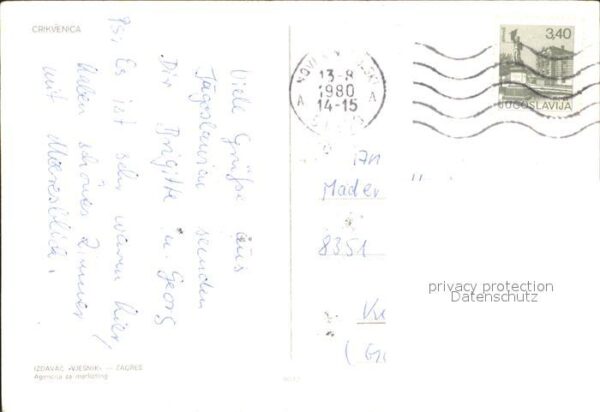 CRIKVENICA
Viele Grüße aus
Jugoslawien senden
Dir Brigitte u. Georg
PS: Es ist sehr warm hier,
haben schönes Zimmer
mit Meeresblick.
13-8
1980
14-15
A A
3,40
JUGOSLAVIJA
An
Mader
8351
privacy protection
Datenschutz
IZDAVAČ »VJESNIK« — ZAGREB
Agencija za marketing